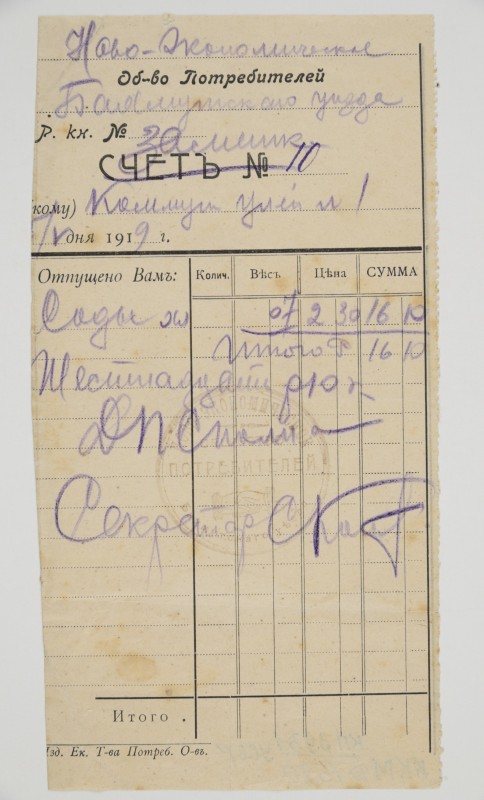 Ново-Экономическое
Об-во Потребителей
Бахмутскаго уезда
Р. кн. №
СЧЕТЪ № 10
кому) Коммун № 1
7/V дня 1919 г.
Отпущено Вамъ: Колич. Вѣсъ Цѣна СУММА
Соды 07 2 30 16 10
Итого Р 16 10
Шестнадцать р 10 к
Секретар
ПОТРЕБИТЕЛЕЙ
Итого .
Изд. Ек. Т-ва Потреб. О-въ.